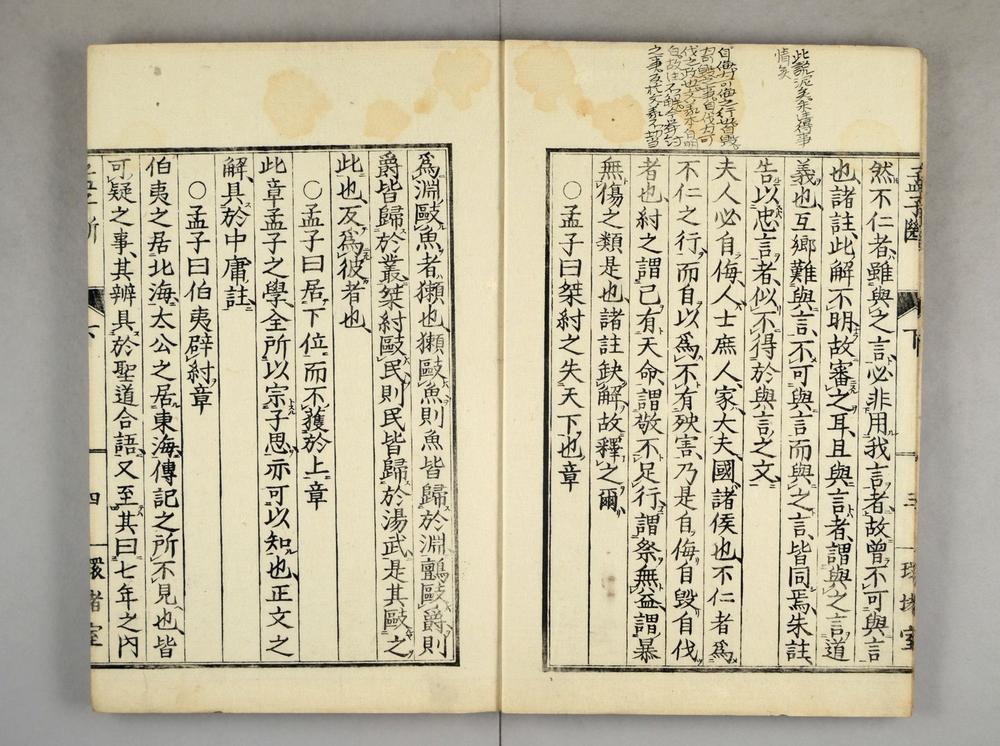 然不仁者雖與之言必非用我言者故曾不可與言
也諸註此解不明故審之耳且與言者謂與之言道
義也互鄉難與言不可與言而與之言皆同焉朱註
告以忠言者似不得於與言之文
夫人必自侮人士庶人家大夫國諸侯也不仁者爲
不仁之行而自以爲不有殃害乃是自侮自毀自伐
者也紂之謂己有天命謂敬不足行謂祭無益謂暴
無傷之類是也諸註缺解故釋之爾
○孟子曰桀紂之失天下也章
爲淵敺魚者獺也獺敺魚則魚皆歸於淵鸇敺爵則
爵皆歸於叢桀紂敺民則民皆歸於湯武是其敺之
此也反爲彼者也
○孟子曰居下位而不獲於上章
此章孟子之學全所以宗子思亦可以知也正文之
解具於中庸註
○孟子曰伯夷辟紂章
伯夷之居北海太公之居東海傳記之所不見也皆
可疑之事其辨具於聖道合語又至其曰七年之內
孟子斷
下
三
環堵室
四
環堵室